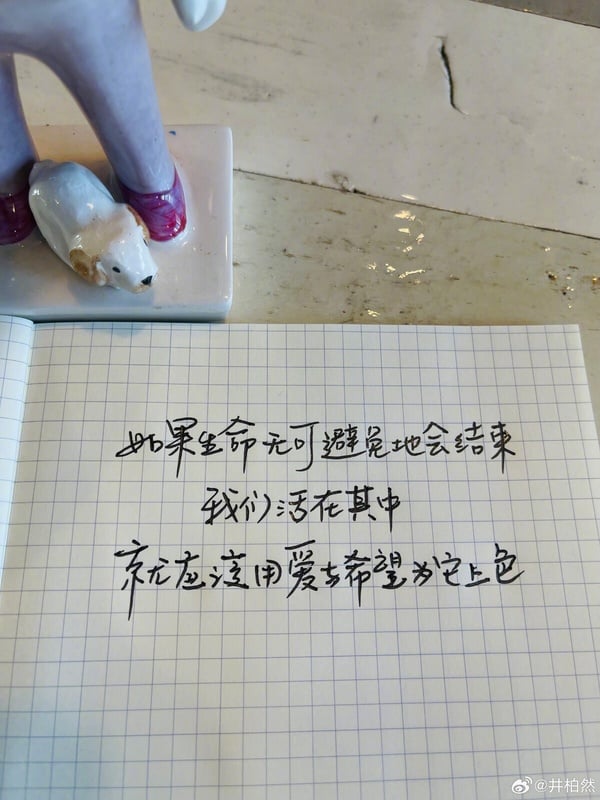 如果生命无可避免地会结束
我们活在其中
就应该用爱与希望为它上色
@井柏然